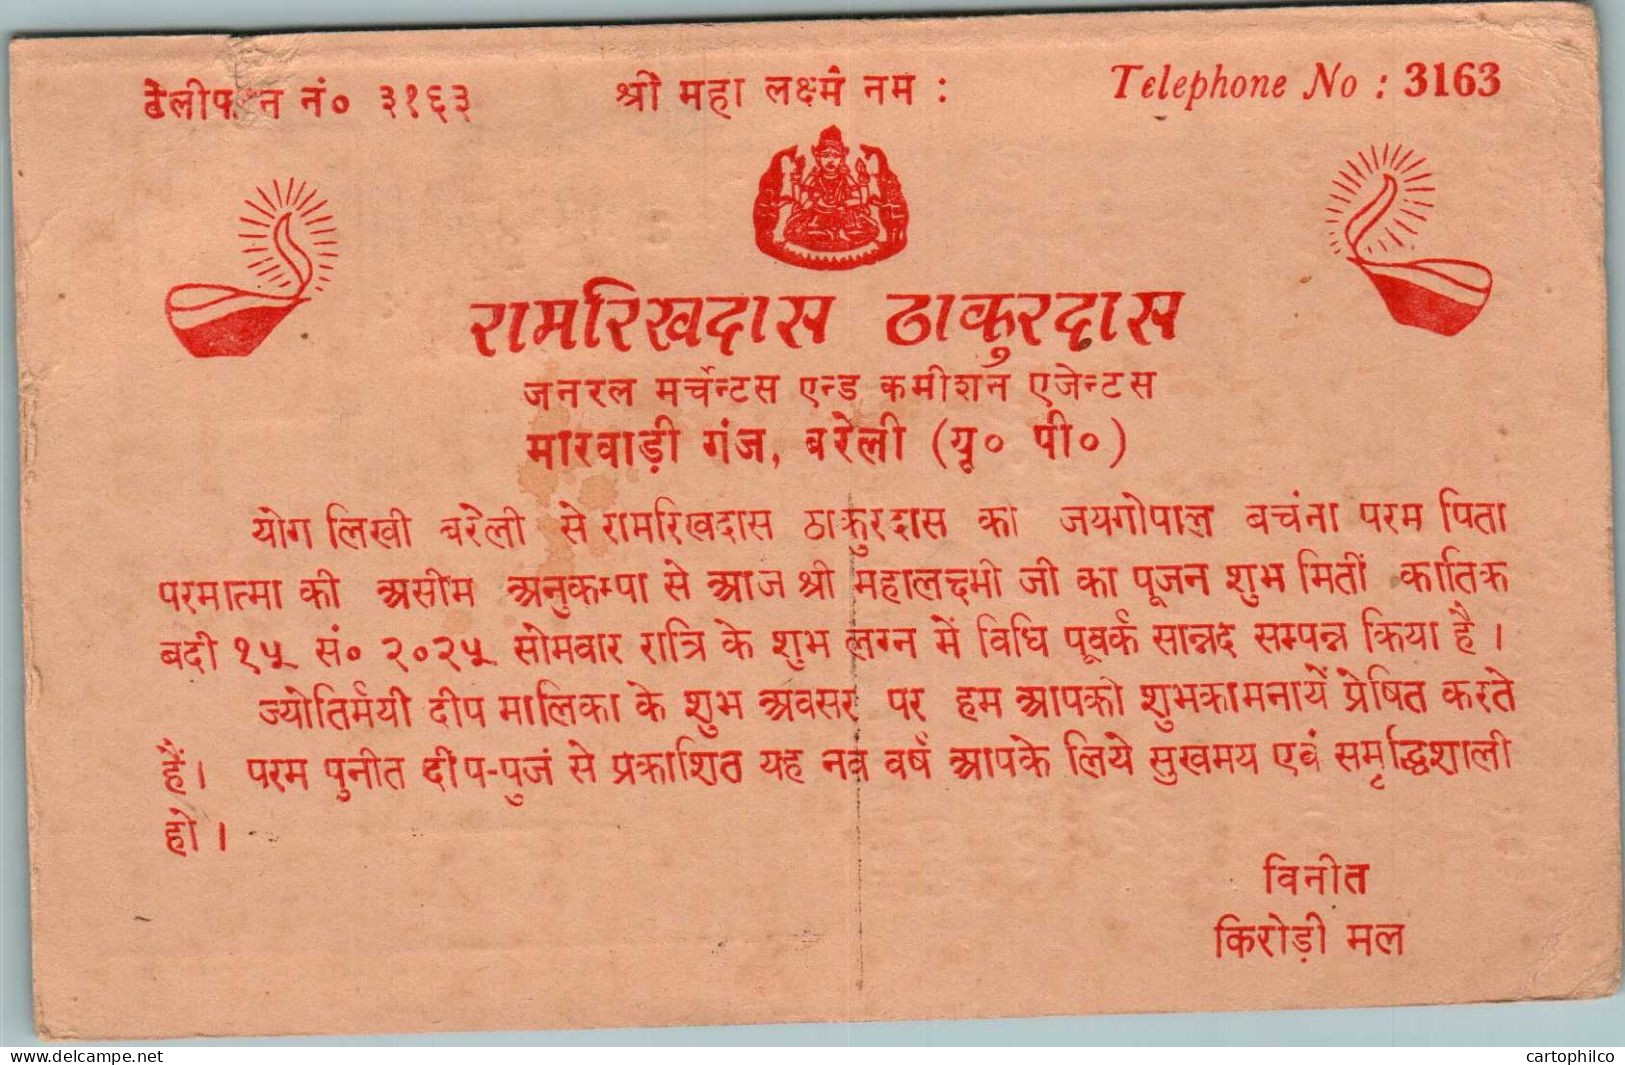 टेलीफोन नं० ३१६३ श्री महा लक्ष्मं नम : Telephone No : 3163
रामरिखदास ठाकुरदास
जनरल मर्चेन्टस एन्ड कमीशन एजेन्टस
मारवाड़ी गंज, बरेली (यू० पी०)
योग लिखी बरेली से रामरिखदास ठाकुरदास का जयगोपाल बचंना परम पिता
परमात्मा की असीम अनुकम्पा से आज श्री महालक्ष्मी जी का पूजन शुभ मितीं कातिक
बदी १५ सं० २०२५ सोमवार रात्रि के शुभ लग्न में विधि पूवर्क सान्नद सम्पन्न किया है ।
ज्योतिर्मयी दीप मालिका के शुभ अवसर पर हम आपको शुभकामनायें प्रेषित करते
हैं। परम पुनीत दीप-पुजं से प्रकाशित यह नव वर्ष आपके लिये सुखमय एवं समृद्धिशाली
हो ।
विनीत
किरोड़ी मल
https://www.delcampe.net cartophilco